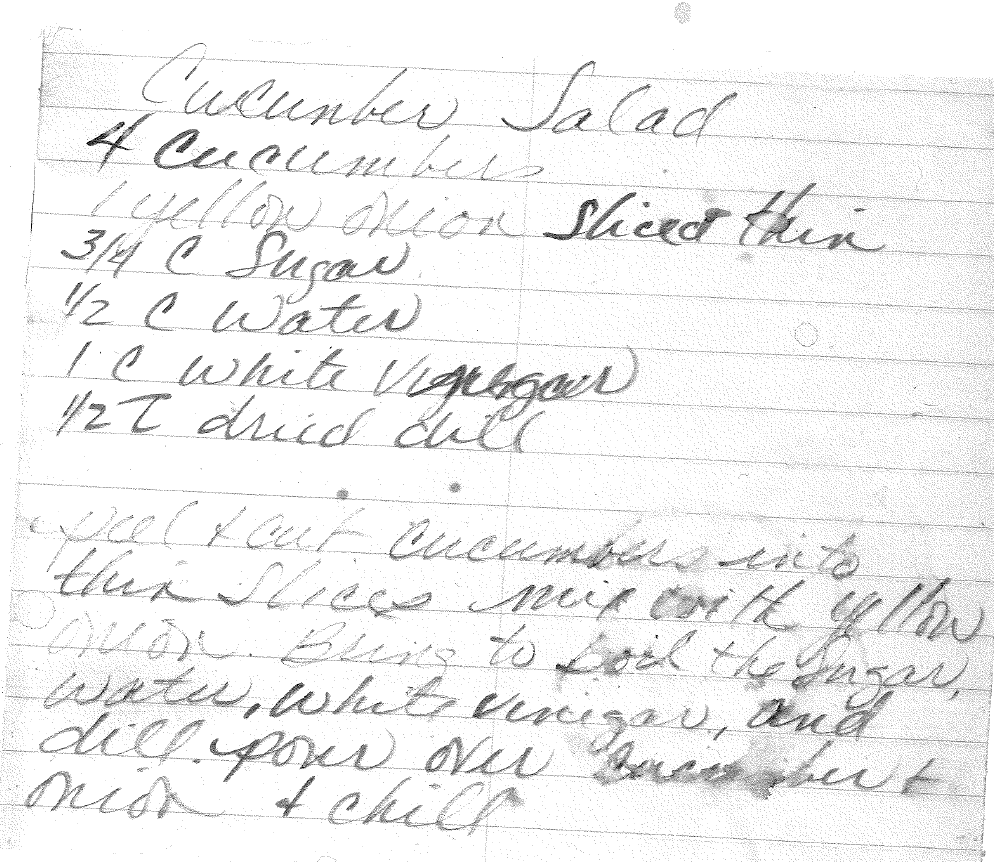 Cucumber Salad
4 Cucumbers
1 yellow onion sliced thin
3/4 C Sugar
1/2 C Water
1 C White
1/2 T dried dill
peel + cut cucumbers into
thin slices mix with yellow
onion. Bring to boil the sugar,
water, white vinigar, and
dill. pour over cucumber +
onion + chill